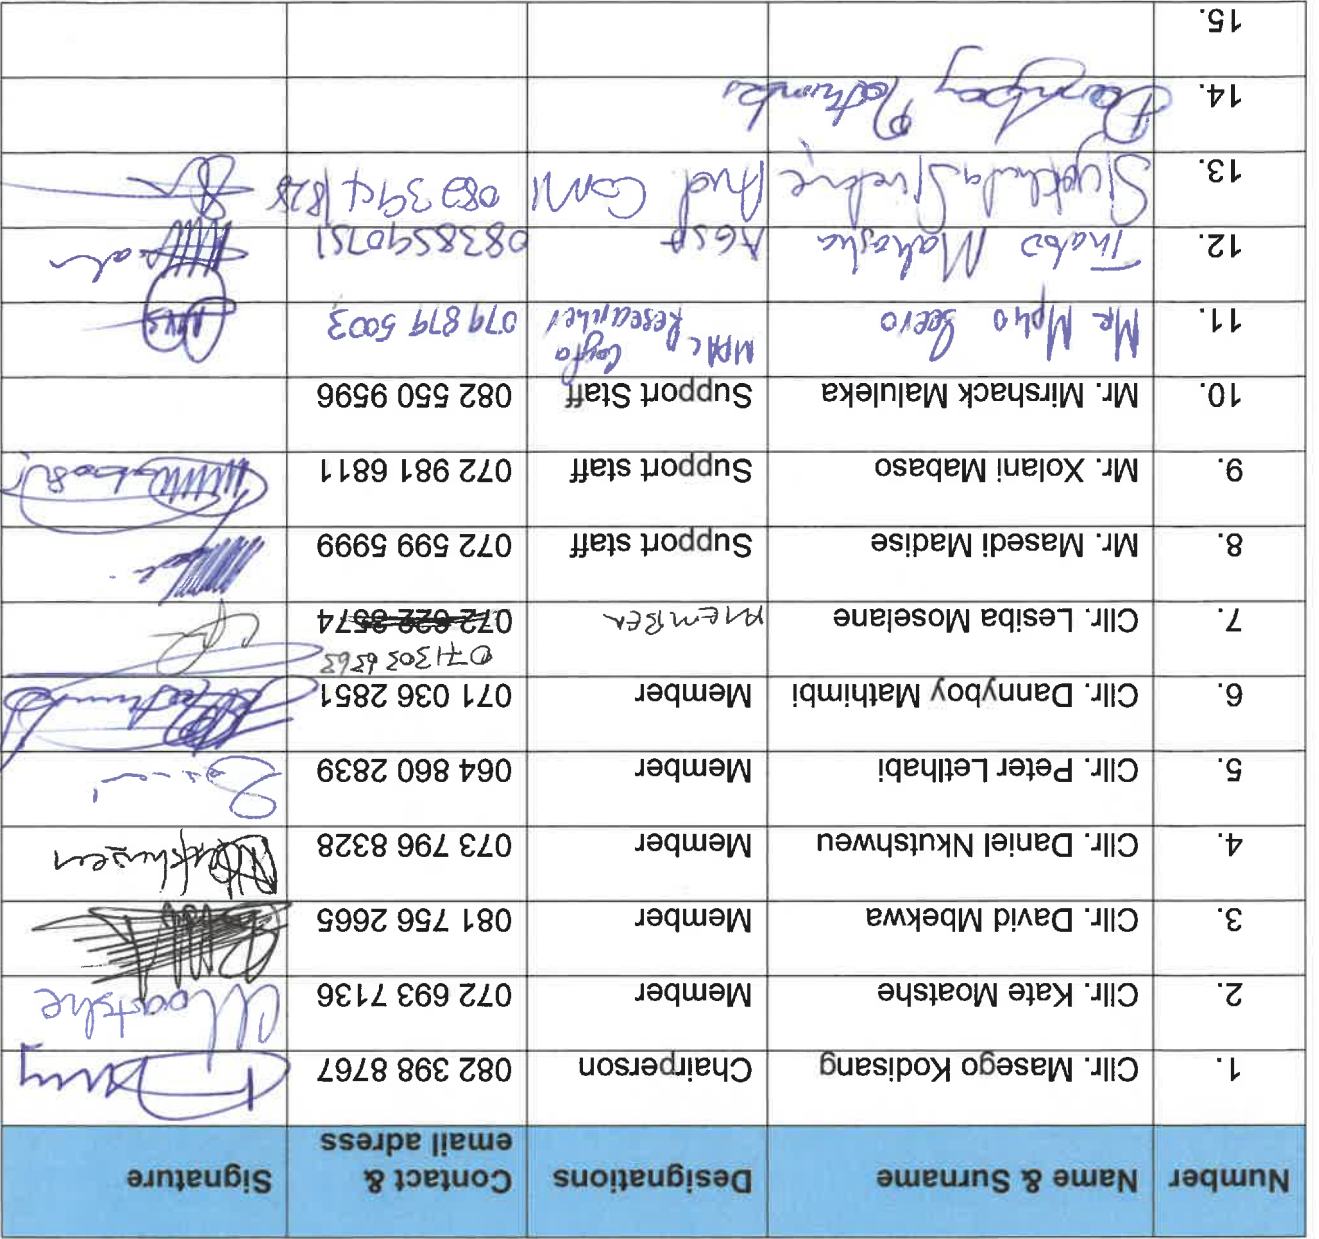 Number Name & Surname Designations Contact & email adress Signature
1. Cllr. Masego Kodisang Chairperson 082 398 8767
2. Cllr. Kate Moatshe Member 072 693 7136 Moatshe
3. Cllr. David Mbekwa Member 081 756 2665
4. Cllr. Daniel Nkutshweu Member 073 796 8328
5. Cllr. Peter Letlhabi Member 064 860 2839
6. Cllr. Dannyboy Mathimbi Member 071 036 2851
071303 6563
7. Cllr. Lesiba Moselane MEMBER 072 622 8574
8. Mr. Masedi Madise Support staff 072 599 5999
9. Mr. Xolani Mabaso Support staff 072 981 6811
10. Mr. Mirshack Maluleka Support Staff 082 550 9596
11. Mr Mpho MPAC Cogta Researcher 079 879 5003
12. Thabo AGSA 0838590751
13. Aud Com 082 394 1828
14. Dannyboy
15.